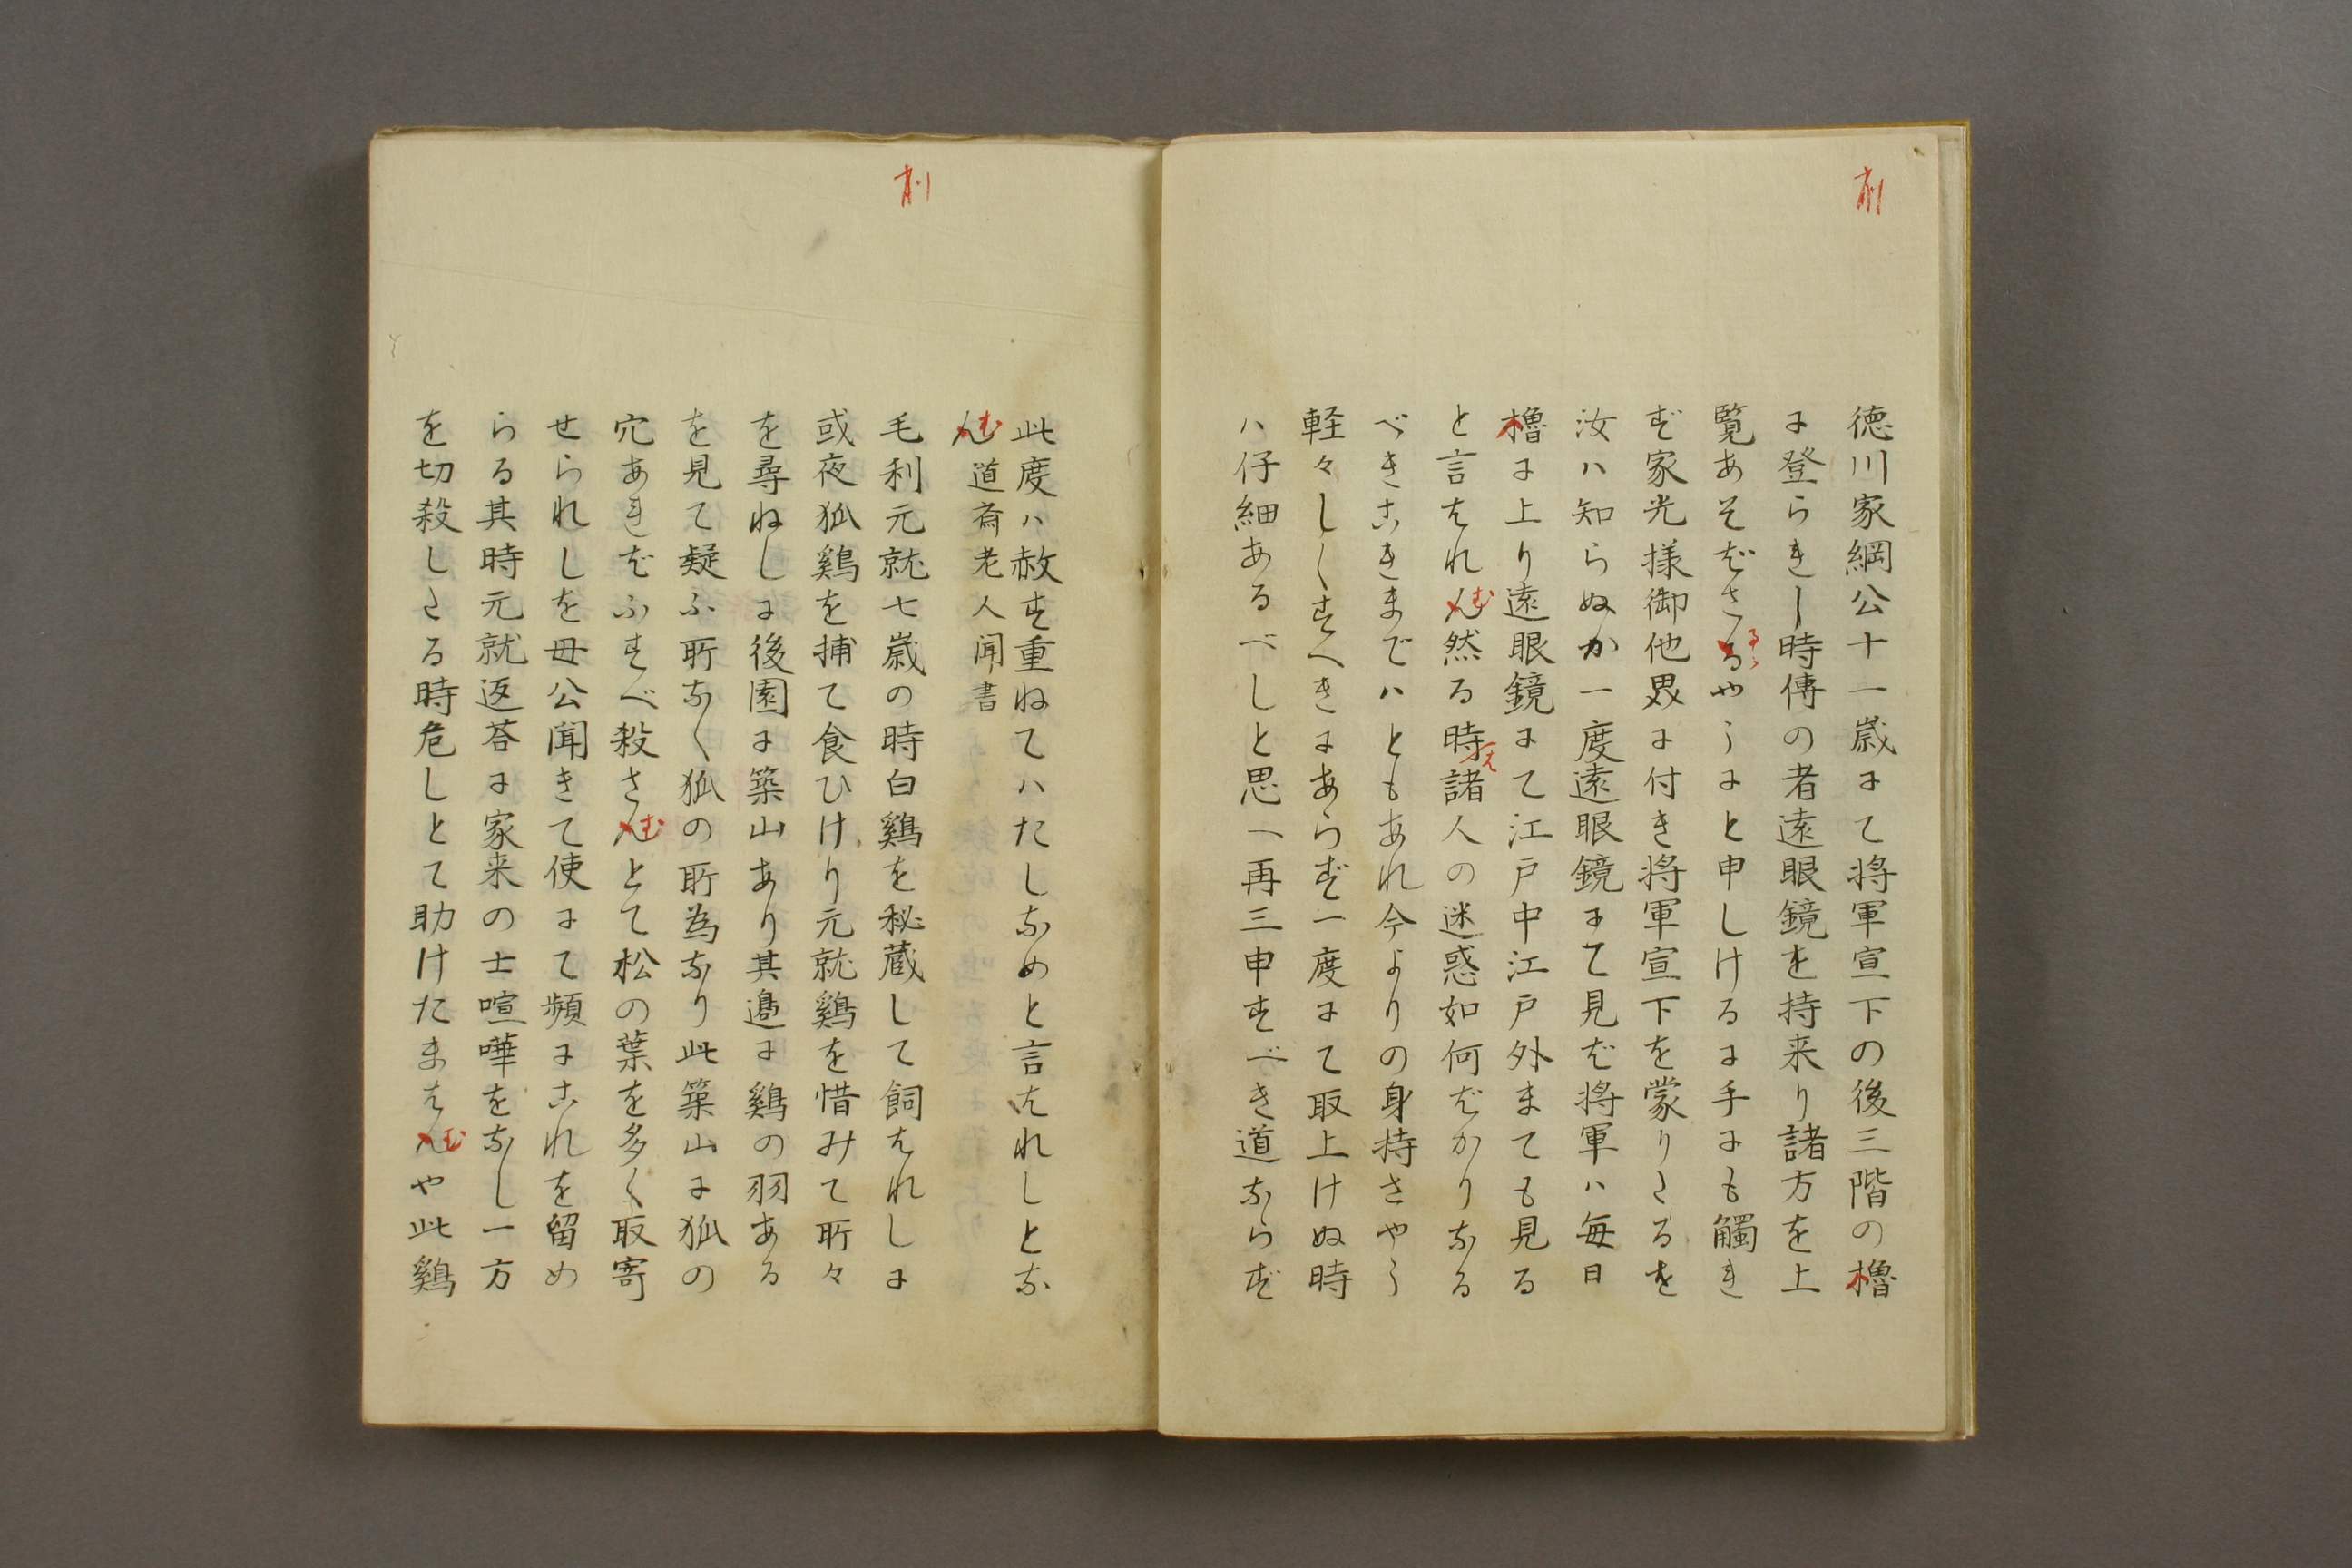 削
徳川家綱公十一歳にて将軍宣下の後三階の櫓
に登られし時傳の者遠眼鏡を持来り諸方を上
覧あそばさるやうにと申しけるに手にも觸れ
ず家光様御他界に付き将軍宣下を蒙りたるを
汝ハ知らぬか一度遠眼鏡にて見ば将軍ハ毎日
櫓に上り遠眼鏡にて江戸中江戸外まても見る
と言はれむ然る時は諸人の迷惑如何ばかりなる
べきこれまでハともあれ今よりの身持さやう
軽々しくすへきにあらず一度にて取上けぬ時
ハ仔細あるべしと思へ再三申すべき道ならず
削
此度ハ赦す重ねてハたしなめと言はれしとな
む 道斎老人聞書
毛利元就七歳の時白鷄を秘蔵して飼はれしに
或夜狐鷄を捕て食ひけり元就鷄を惜みて所々
を尋ねしに後園に築山あり其邉に鷄の羽ある
を見て疑ふ所なく狐の所為なり此築山に狐の
穴あればふすべ殺さむとて松の葉を多く取寄
せられしを母公聞きて使にて頻にこれを留め
らる其時元就返荅に家来の士喧嘩をなし一方
を切殺したる時危しとて助けたまはむや此鷄